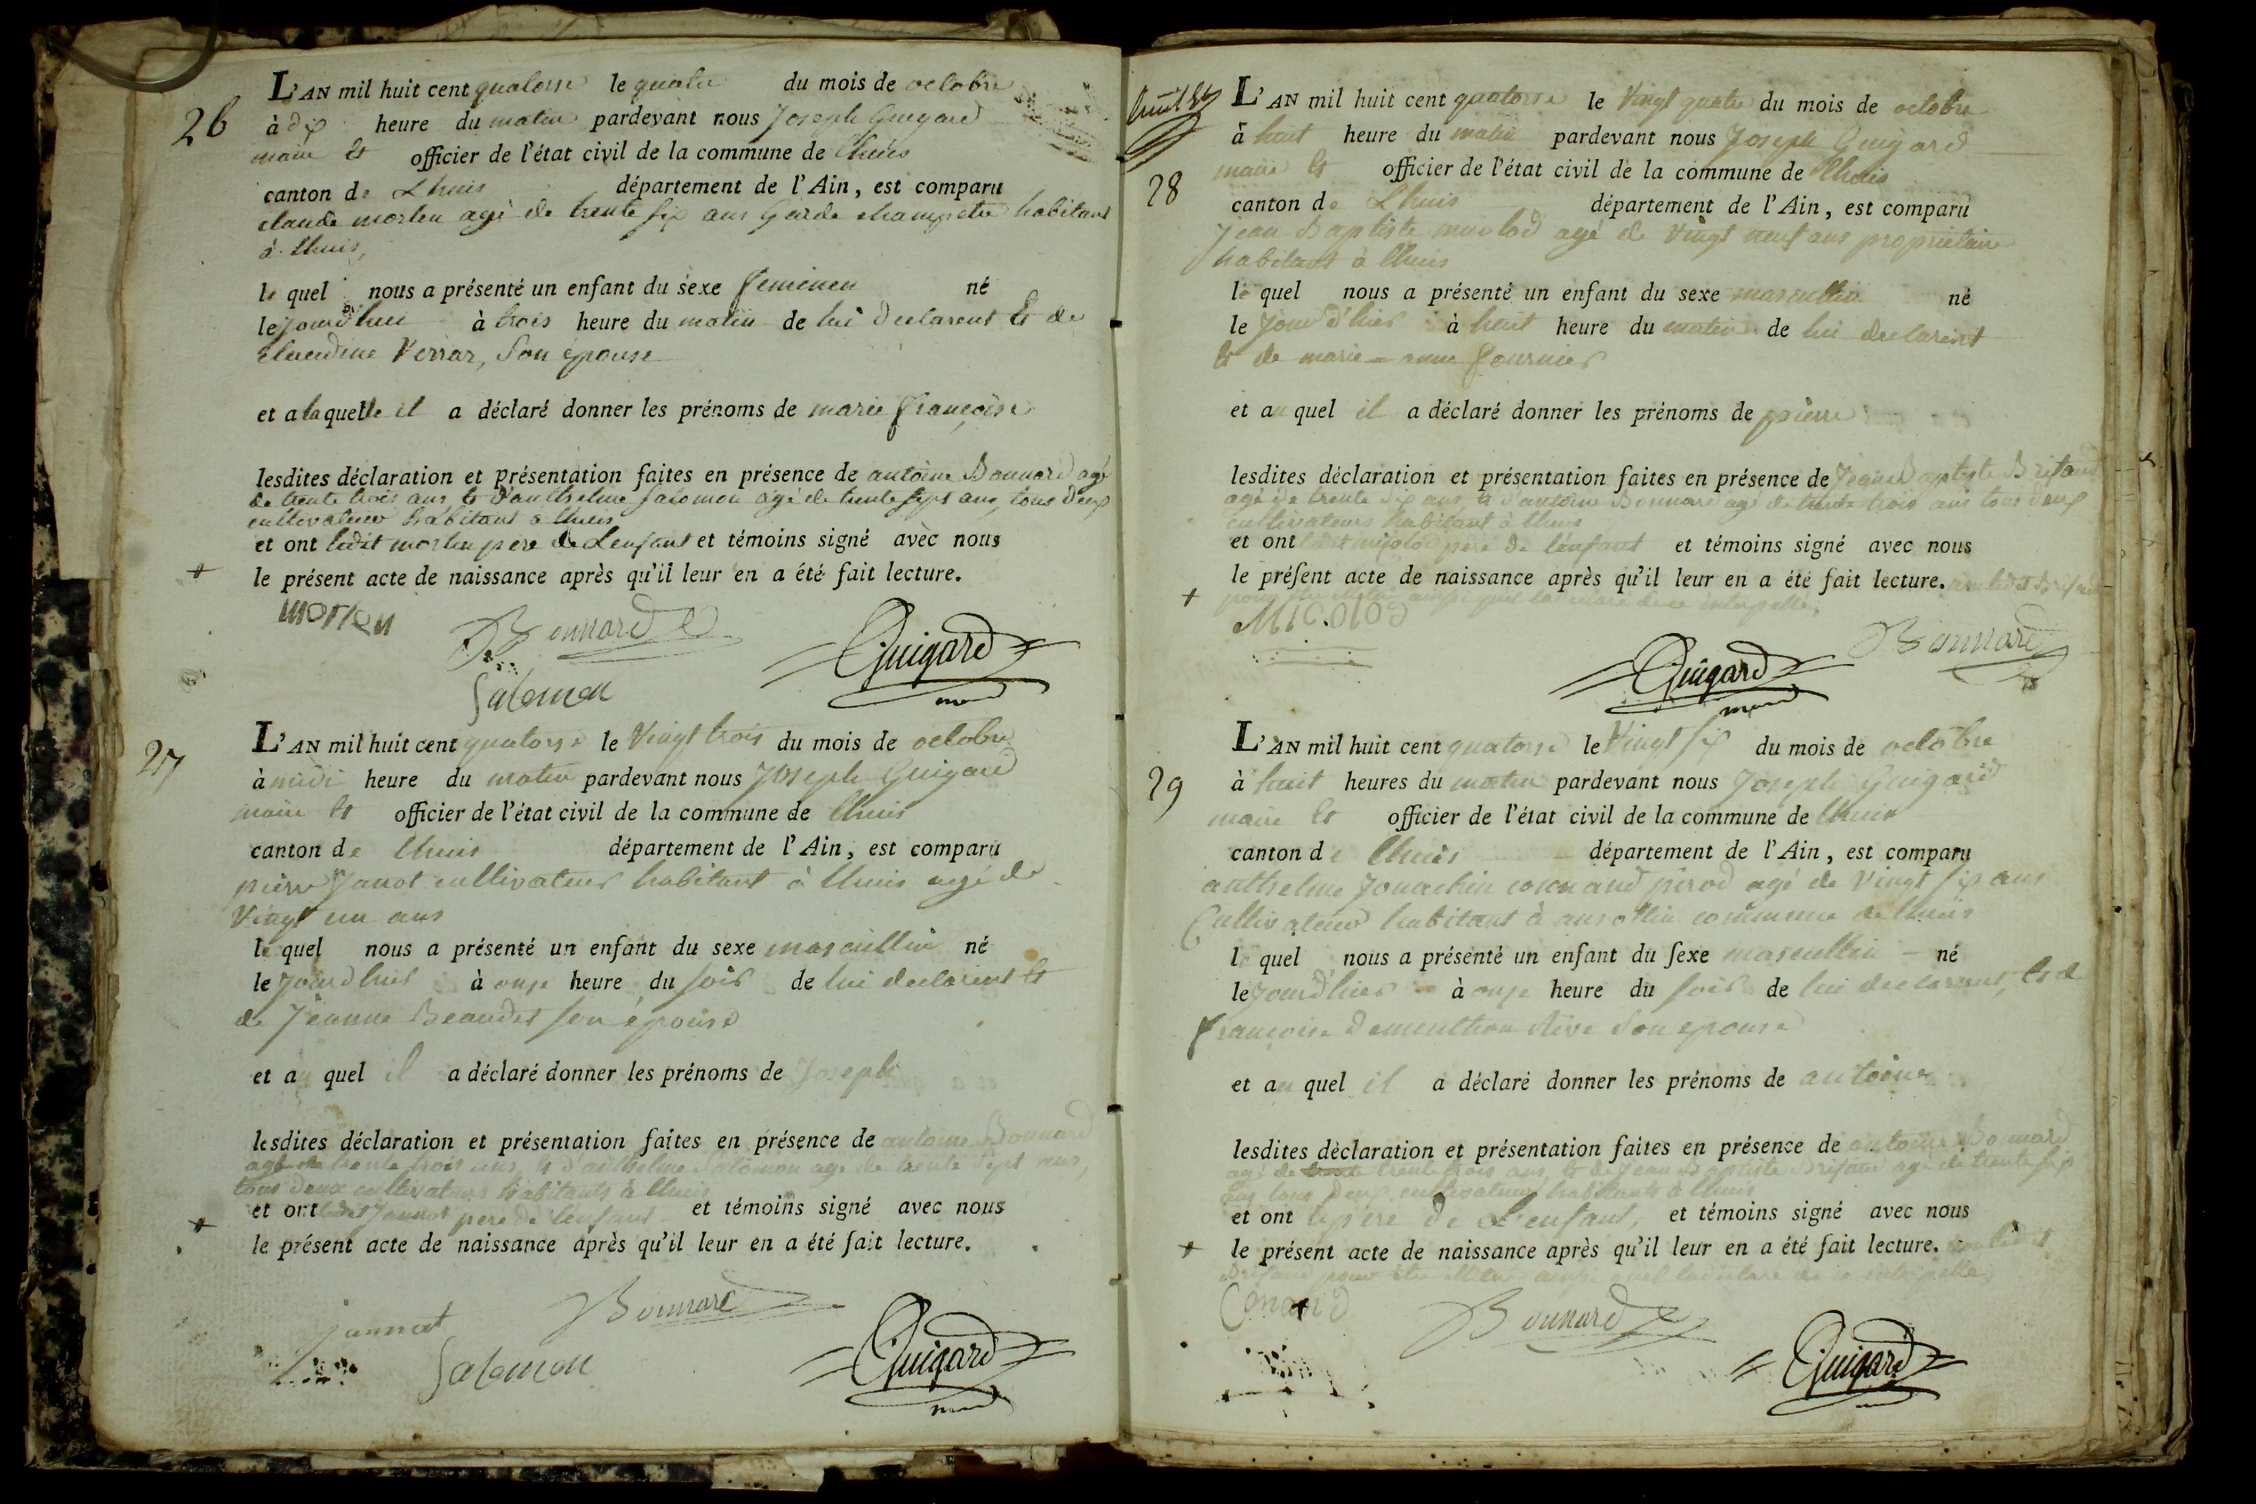 26
L'AN mil huit cent quatorse le quatre du mois de octobre
à dix heure du matin pardevant nous Joseph Guigard
maire et officier de l'état civil de la commune de lhuis
canton de Lhuis département de l'Ain, est comparu
claude morlen agé de trente six ans Garde champetre habitant
à lhuis,
le quel nous a présenté un enfant du sexe feminen né
le jourd'hui à trois heure du matin de lui declarent et de
Claudine Verrar, son épouse
et a laquelle il a déclaré donner les prénoms de marie françoise
lesdites déclaration et présentation faites en présence de antoine Bonnard agé
de trente trois ans et d'anthelme salomon agé de trente sept ans, tous deux
cultivateur habitant a lhuis
et ont ledit morlen pere de L'enfant et témoins signé avec nous
le présent acte de naissance après qu'il leur en a été fait lecture.
morlen Bonnard Guigard
Salomon maire
27
L'AN mil huit cent quatorse le Vingt trois du mois de octobre
à midi heure du matin pardevant nous Joseph Guigard
maire et officier de l'état civil de la commune de lhuis
canton de lhuis département de l'Ain, est comparu
pierre Janot cultivateur habitant à lhuis agé de
Vingt un ans
le quel nous a présenté un enfant du sexe mascullin né
le jourd'hier à onze heure du soir de lui declarent et
de Jeanne Beaudet son épouse
et au quel il a déclaré donner les prénoms de Joseph
lesdites déclaration et présentation faites en présence de antoine Bonnard
agé de trente trois ans, et d'anthelme Salomon agé de trente sept ans,
tous deux cultivateurs habitants à lhuis
et ont ledit Jannot pere de lenfant et témoins signé avec nous
le présent acte de naissance après qu'il leur en a été fait lecture.
jannot Bonnard Guigard
Salomon maire
28
L'AN mil huit cent quatorse le Vingt quatre du mois de octobre
à huit heure du matin pardevant nous Joseph Guigard
maire et officier de l'état civil de la commune de lhuis
canton de Lhuis département de l'Ain, est comparu
Jean Baptiste micolod agé de Vingt neuf ans proprietaire
habitant à lhuis
le quel nous a présenté un enfant du sexe mascullin né
le Jour d'hier à huit heure du matin de lui declarent
et de marie - anne fournier
et au quel il a déclaré donner les prénoms de pierre
lesdites déclaration et présentation faites en présence de Jean Baptiste
agé de trente six ans, et d'antoine Bonnard agé de trente trois ans tous deux
cultivateurs habitant à lhuis
et ont ledit micolod pere de l'enfant et témoins signé avec nous
le présent acte de naissance après qu'il leur en a été fait lecture.
Micolod
Guigard Bonnard
maire
29
L'AN mil huit cent quatorse le Vingt six du mois de octobre
à huit heures du matin pardevant nous Joseph Guigard
maire et officier de l'état civil de la commune de lhuis
canton de lhuis département de l'Ain, est comparu
anthelme Jouachin perod agé de Vingt six ans
Cultivateur habitant à ansollin commune de lhuis
le quel nous a présenté un enfant du sexe mascullin né
le jourd'hier à onze heure du soir de lui declarent, et de
françoise Dementhon Rive son epouse
et au quel il a déclaré donner les prénoms de antoine
lesdites déclaration et présentation faites en présence de antoine Bonnard
agé de trente trois ans, et de Jean Baptiste agé de trente six
ans tous deux cultivateurs habitants à lhuis
et ont le pere de L'enfant, et témoins signé avec nous
le présent acte de naissance après qu'il leur en a été fait lecture.
Bonnard Guigard